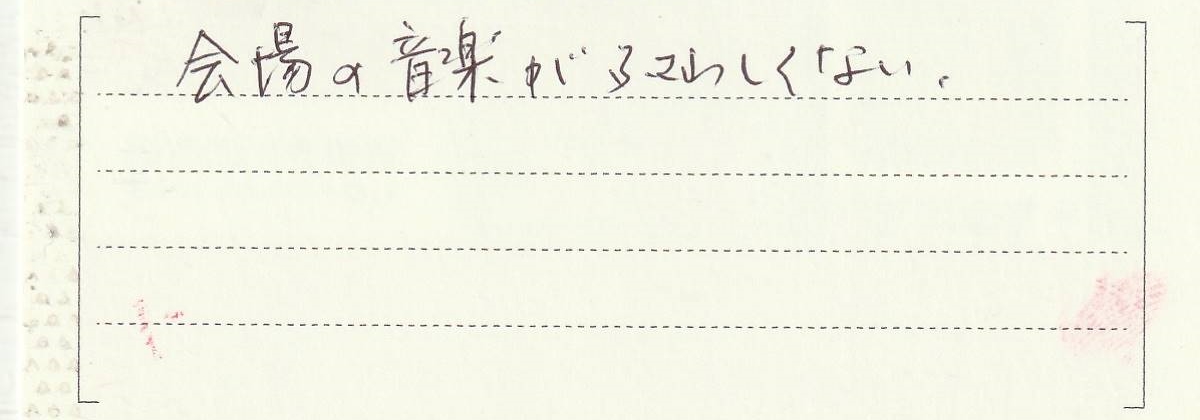 会場の音楽がふさわしくない.